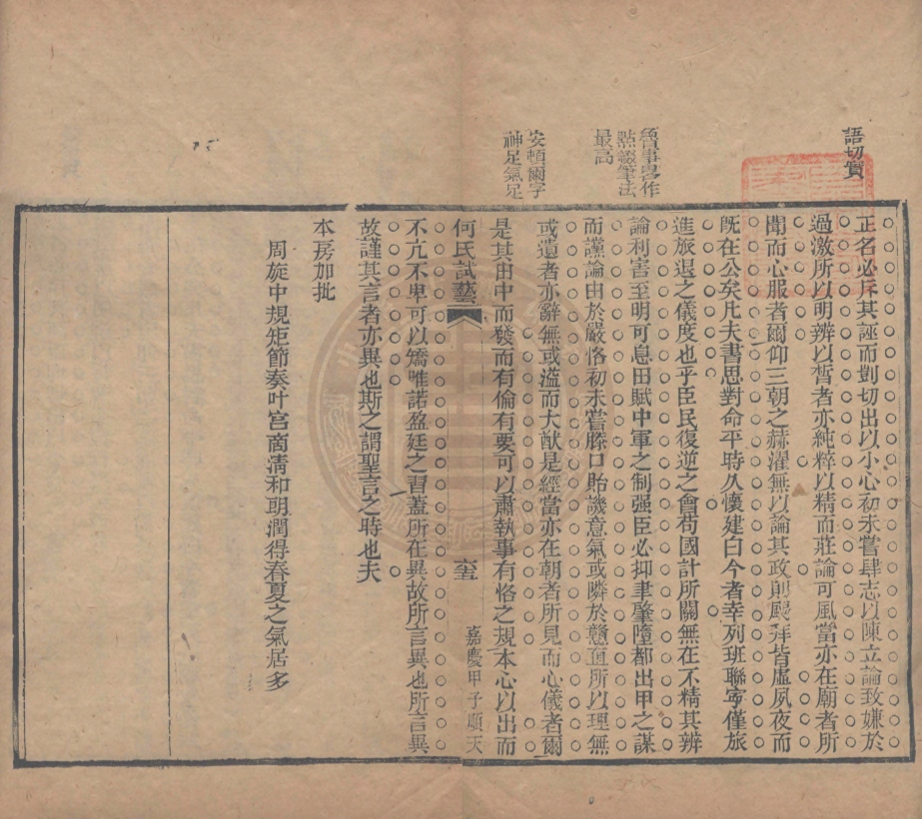 語切實
魯事畧作
點綴筆法
最高
安頓爾字
神足氣足
正名必斥其誣而剴切出以小心初未嘗肆志以陳立論致嫌於
過激所以明辨以晳者亦純粹以精而莊論可風當亦在廟者所
聞而心服者爾仰三朝之赫濯無以論其政則颺拜皆虛夙夜而
旣在公矣凡夫書思對命平時久懷建白今者幸列班聯寧僅旅
進旅退之儀度也乎臣民復逆之會苟國計所關無在不精其辨
論利害至明可息田賦中軍之制强臣必抑聿肇墮都出甲之謀
而讜論由於嚴恪初未嘗騰口貽譏意氣或隣於戇直所以理無
或遺者亦辭無或溢而大猷是經當亦在朝者所見而心儀者爾
是其由中而發而有倫有要可以肅執事有恪之規本心以出而
何氏試藝
六五
嘉慶甲子順天
不亢不卑可以矯唯諾盈廷之習蓋所在異故所言異也所言異
故謹其言者亦異也斯之謂聖言之時也夫
本房加批
周旋中規矩節奏叶宫商淸和明潤得春夏之气居多